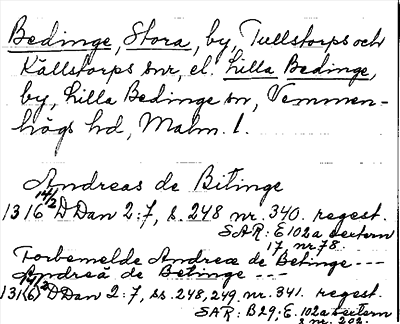 Bedinge, Stora, by, Tullstorps och
Källstorps snr, el. Lilla Bedinge,
by, Lilla Bedinge sn, Vemmen-
högs hd, Malm. l.
Andreas de Bitinge
1316 14/2 D Dan 2:7, s. 248 nr. 340. regest.
SAR: E 102a
17, nr. 78.
Forbemelde Andreæ de Betinge ---
Andreä de Betinge ---
1316 14/2 D Dan 2:7, ss. 248, 249, nr. 341. regest.
SAR: B 29; E. 102a
2 nr. 202.